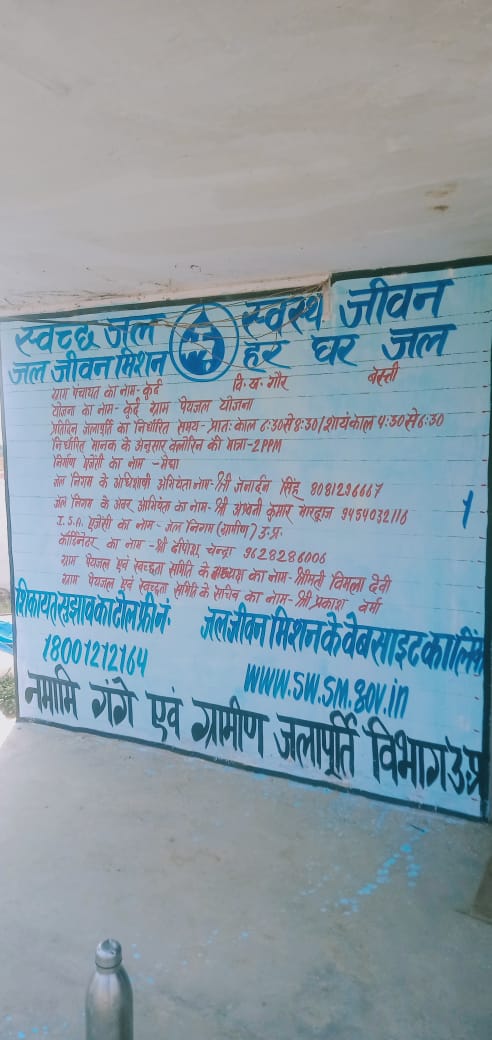 स्वच्छ जल स्वस्थ जीवन
जल जीवन मिशन हर घर जल
ग्राम पंचायत का नाम- कुर्द वि.ख. गौर बस्ती
योजना का नाम- कुर्द ग्राम पेयजल योजना
प्रतिदिन जलापूर्ति का निर्धारित समय- प्रातः काल 6:30 से 8:30/ सायंकाल 4:30 से 6:30
निर्धारित मानक के अनुसार क्लोरिन की मात्रा-2PPM
निर्माण एजेंसी का नाम - मेघा
जल निगम के अधिशाषी अभियंता नाम- श्री जनार्दन सिंह 8081296667
जल निगम के अवर अभियंता का नाम- श्री अश्वनी कुमार भारद्वाज 9454032116
I.S.A. एजेंसी का नाम - जल निगम (ग्रामीण) उ.प्र.
कोर्डिनेटर का नाम -श्री दीपेश चन्द्रा 9628286006
ग्राम पेयजल एवं स्वच्छता समिति के अध्यक्ष का नाम- श्रीमती विमला देवी
ग्राम पेयजल एवं स्वच्छता समिति के सचिव का नाम- श्री प्रकाश वर्मा
शिकायत सुझाव का टोल फ्री नं: जल जीवन मिशन के वेबसाइट का लिंक
18001212164 www.sw.sm.gov.in
नमामि गंगे एवं ग्रामीण जलापूर्ति विभाग उ.प्र